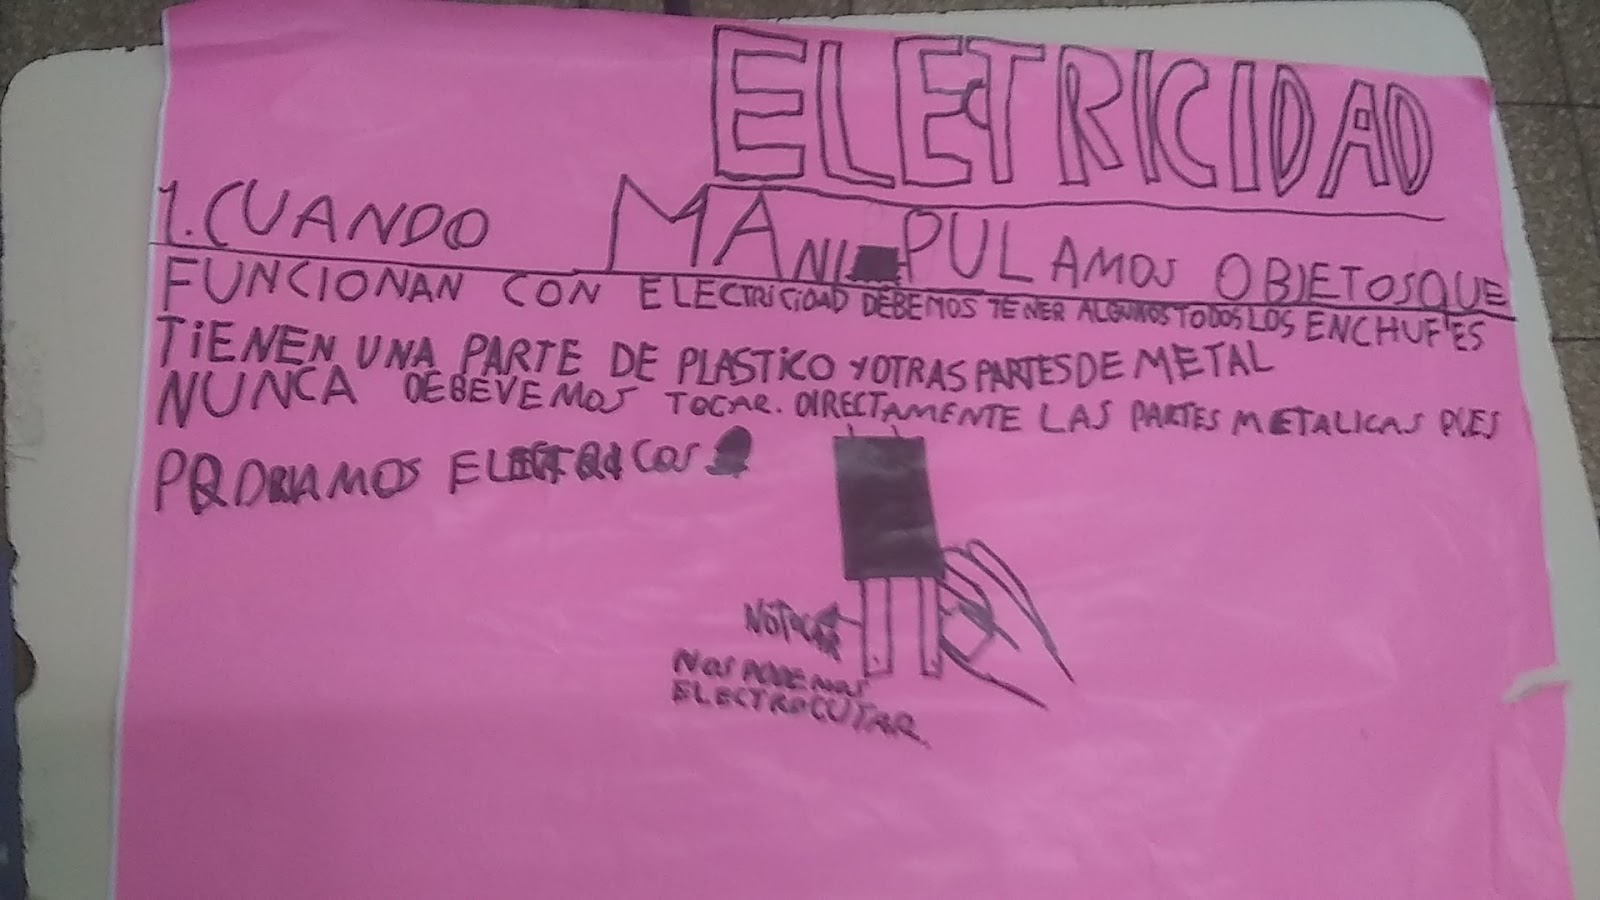 ELECTRICIDAD
1. CUANDO MANIPULAMOS OBJETOS QUE
FUNCIONAN CON ELECTRICIDAD DEBEMOS TENER ALGUNOS TODOS LOS ENCHUFES
TIENEN UNA PARTE DE PLASTICO Y OTRAS PARTES DE METAL
NUNCA DEBEVEMOS TOCAR. DIRECTAMENTE LAS PARTES METALICAS PUES
PODRIAMOS
NO TOCAR
NOS PODEMOS
ELECTROCUTAR.